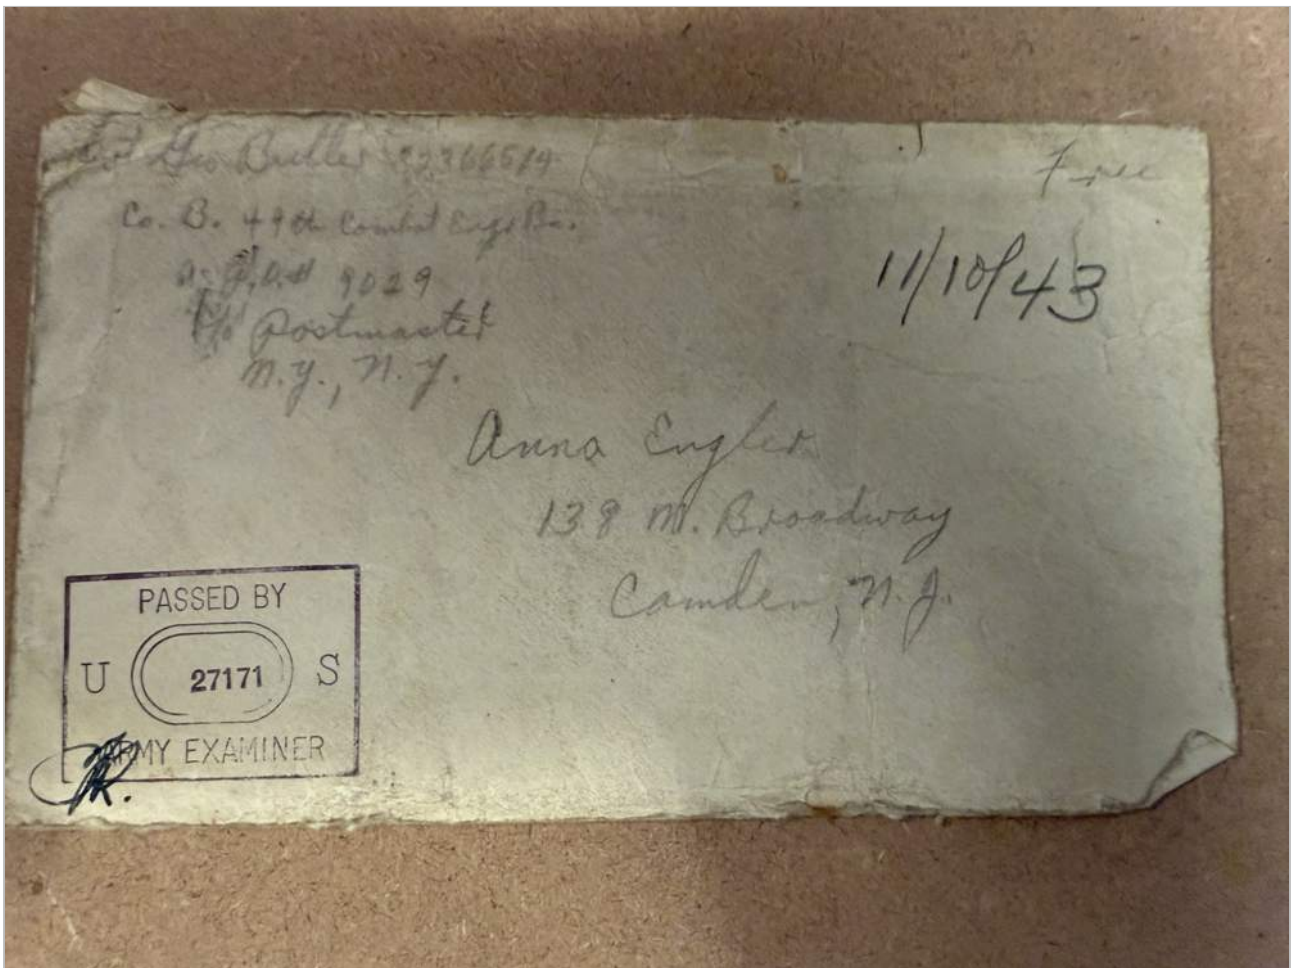 Geo Butler 32366514
Co. B. 49th Combat Engr Bn.
A.P.O.# 9029
c/o Postmaster
N.Y., N.Y.
Free
11/10/43
Anna Engler
138 N. Broadway
Camden, N.J.
PASSED BY
U 27171 S
ARMY EXAMINER